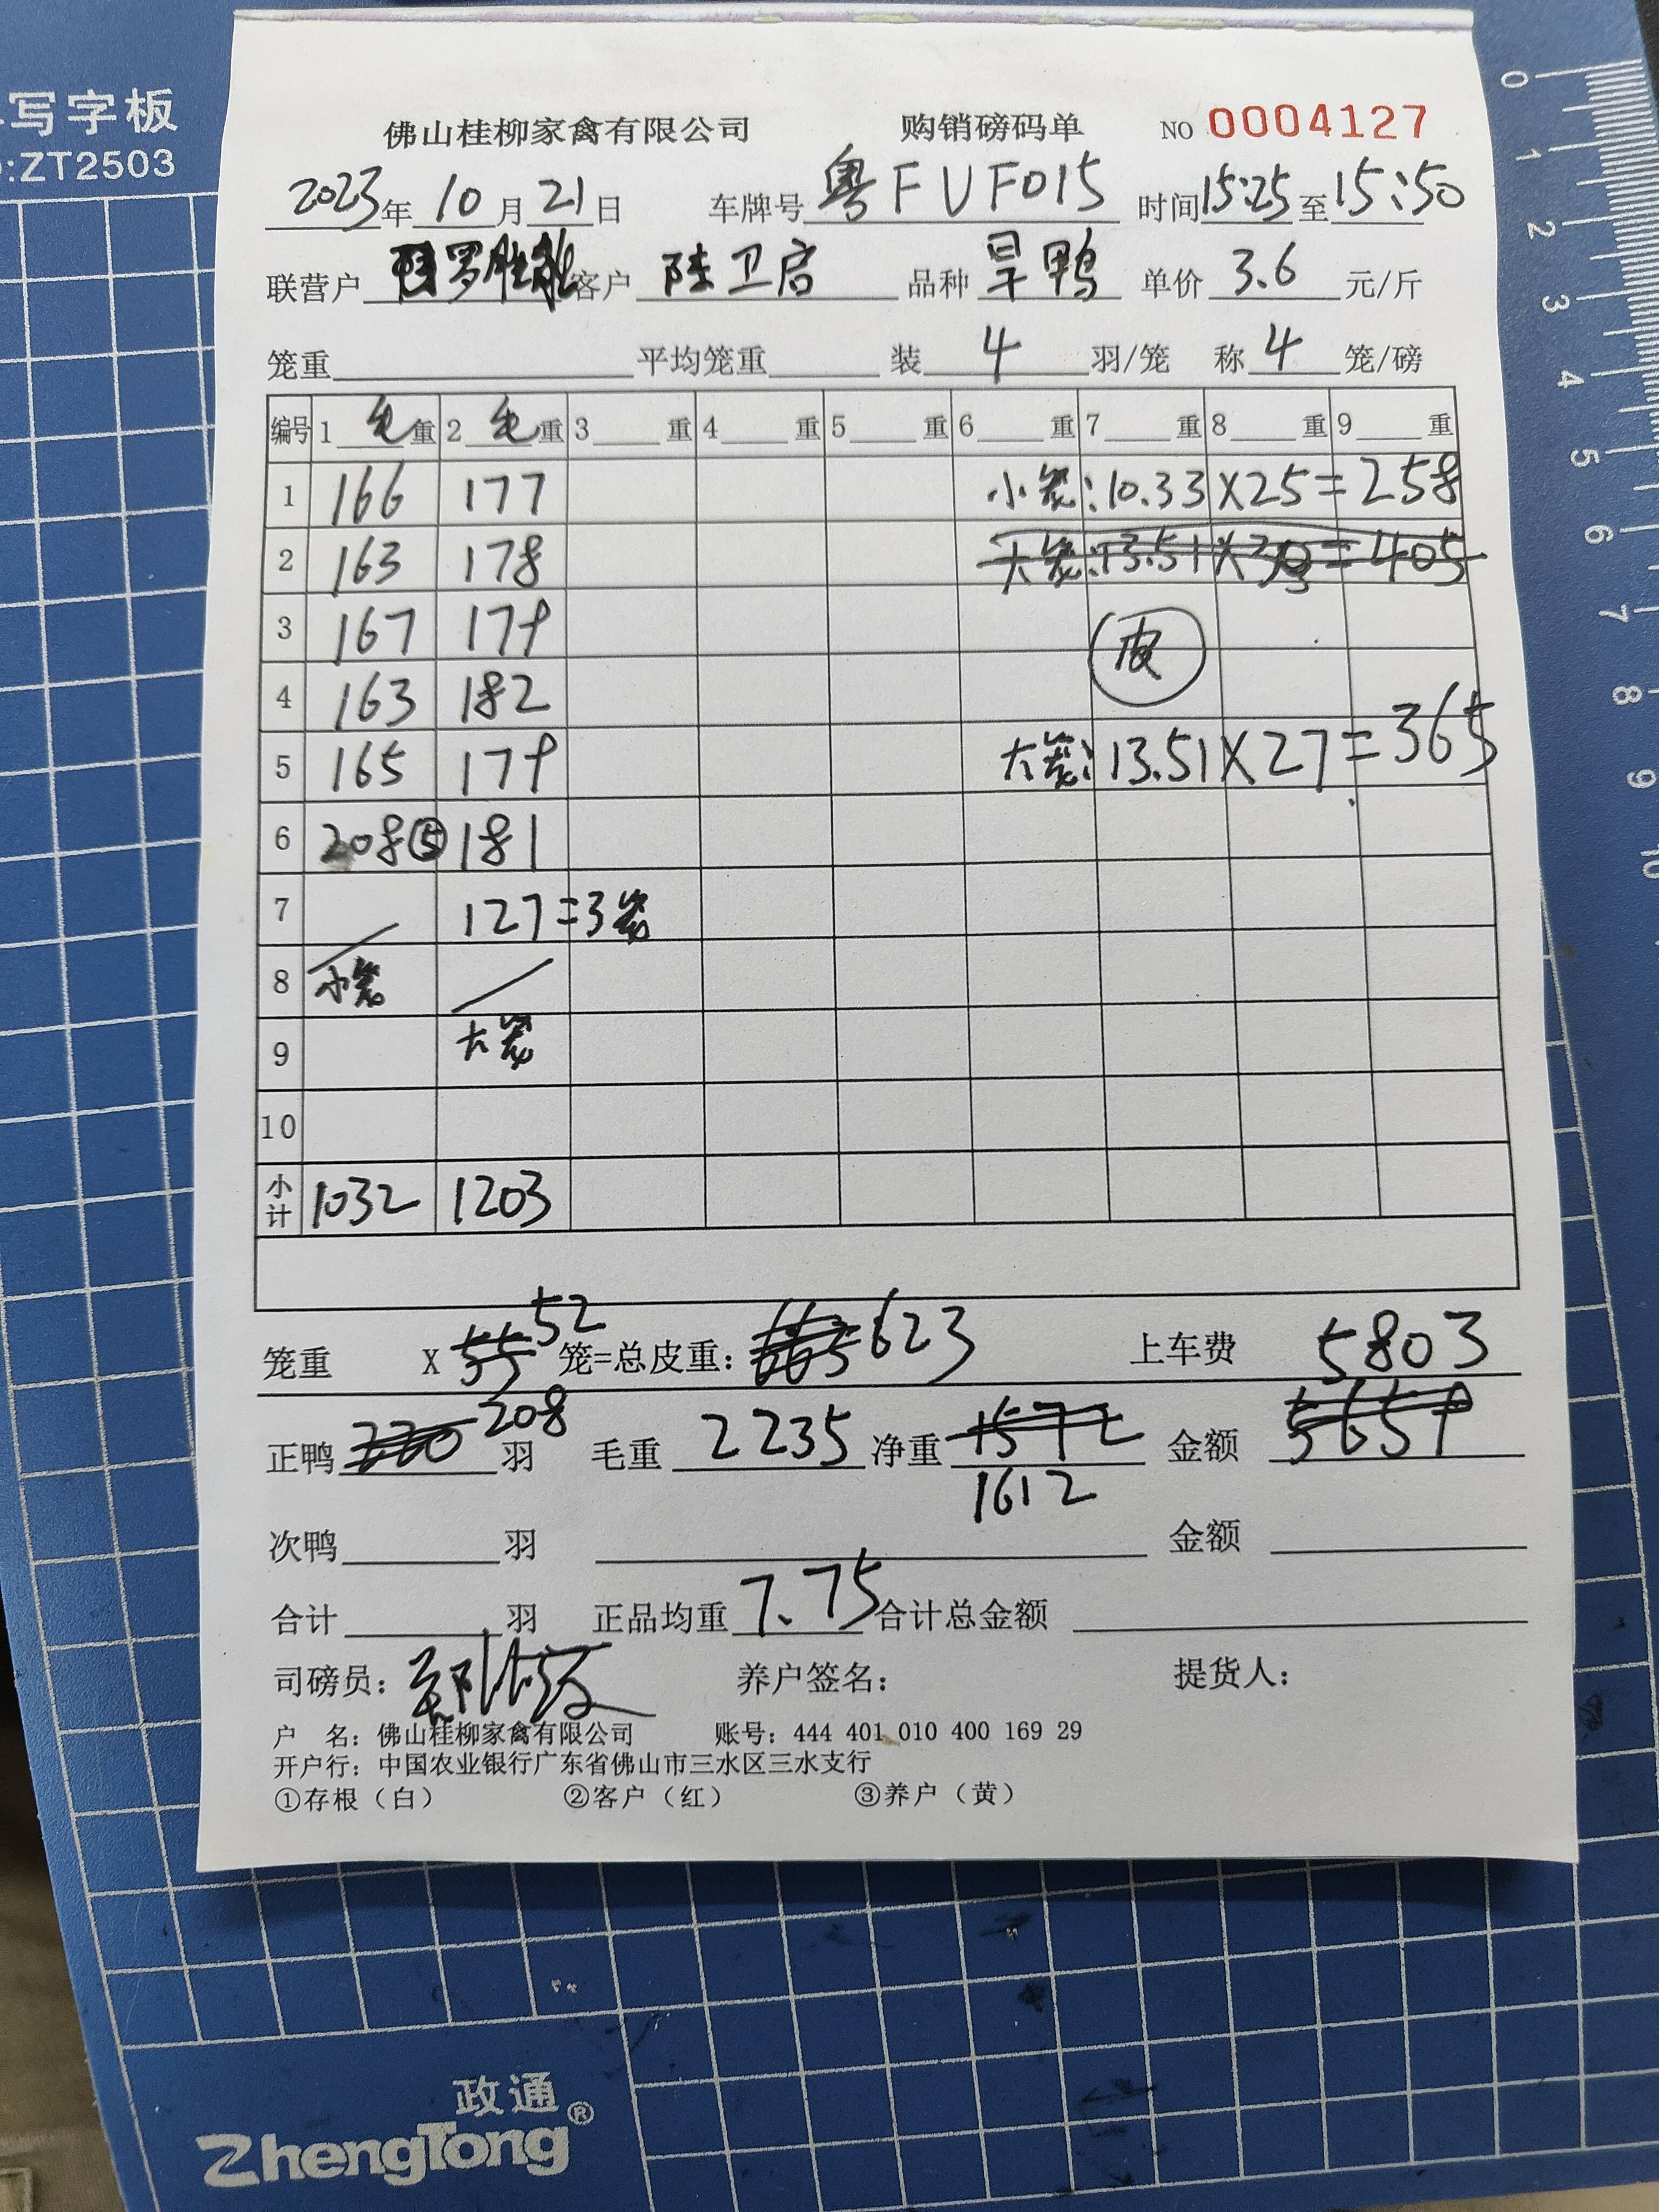 写字板
:ZT2503
佛山桂柳家禽有限公司 购销磅码单 NO 0004127
2023年 10月 21日 车牌号 粤FUF015 时间 15:25 至 15:50
联营户 罗胜 客户 陆卫启 品种 旱鸭 单价 3.6 元/斤
笼重 平均笼重 装 4 羽/笼 称 4 笼/磅
编号 1 毛 重 2 毛 重 3 重 4 重 5 重 6 重 7 重 8 重 9 重
1 166 177 小笼:10.33×25=258
2 163 178 大笼:13.51×30=405
3 167 179 皮
4 163 182
5 165 179 大笼:13.51×27=365
6 208⑤ 181
7 127=3笼
8 小笼
9 大笼
10
小计 1032 1203
笼重 X 55 52 笼=总皮重: 663 623 上车费 5803
正鸭 220 208 羽 毛重 2235 净重 1572 金额 5659
1612
次鸭 羽 金额
合计 羽 正品均重 7.75 合计总金额
司磅员: 养户签名: 提货人:
户 名: 佛山桂柳家禽有限公司 账号: 444 401 010 400 169 29
开户行: 中国农业银行广东省佛山市三水区三水支行
①存根（白） ②客户（红） ③养户（黄）
0
1
2
3
4
5
6
7
8
9
10
政通®
ZhengTong